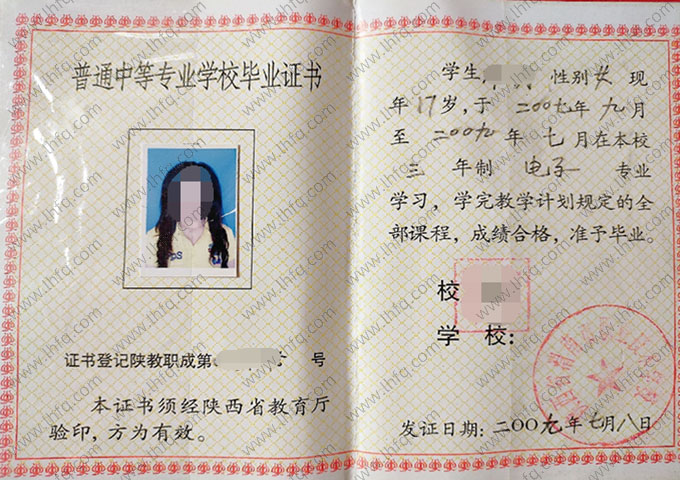 普通中等专业学校毕业证书
证书登记陕教职成第 号
本证书须经陕西省教育厅
验印，方为有效。
学生 性别女 现
年17岁，于二〇〇七年九月
至二〇〇九年七月在本校
三年制 电子 专业
学习，学完教学计划规定的全
部课程，成绩合格，准予毕业。
校
学 校：
发证日期：二〇〇九年七月八日
www.lhfq.com